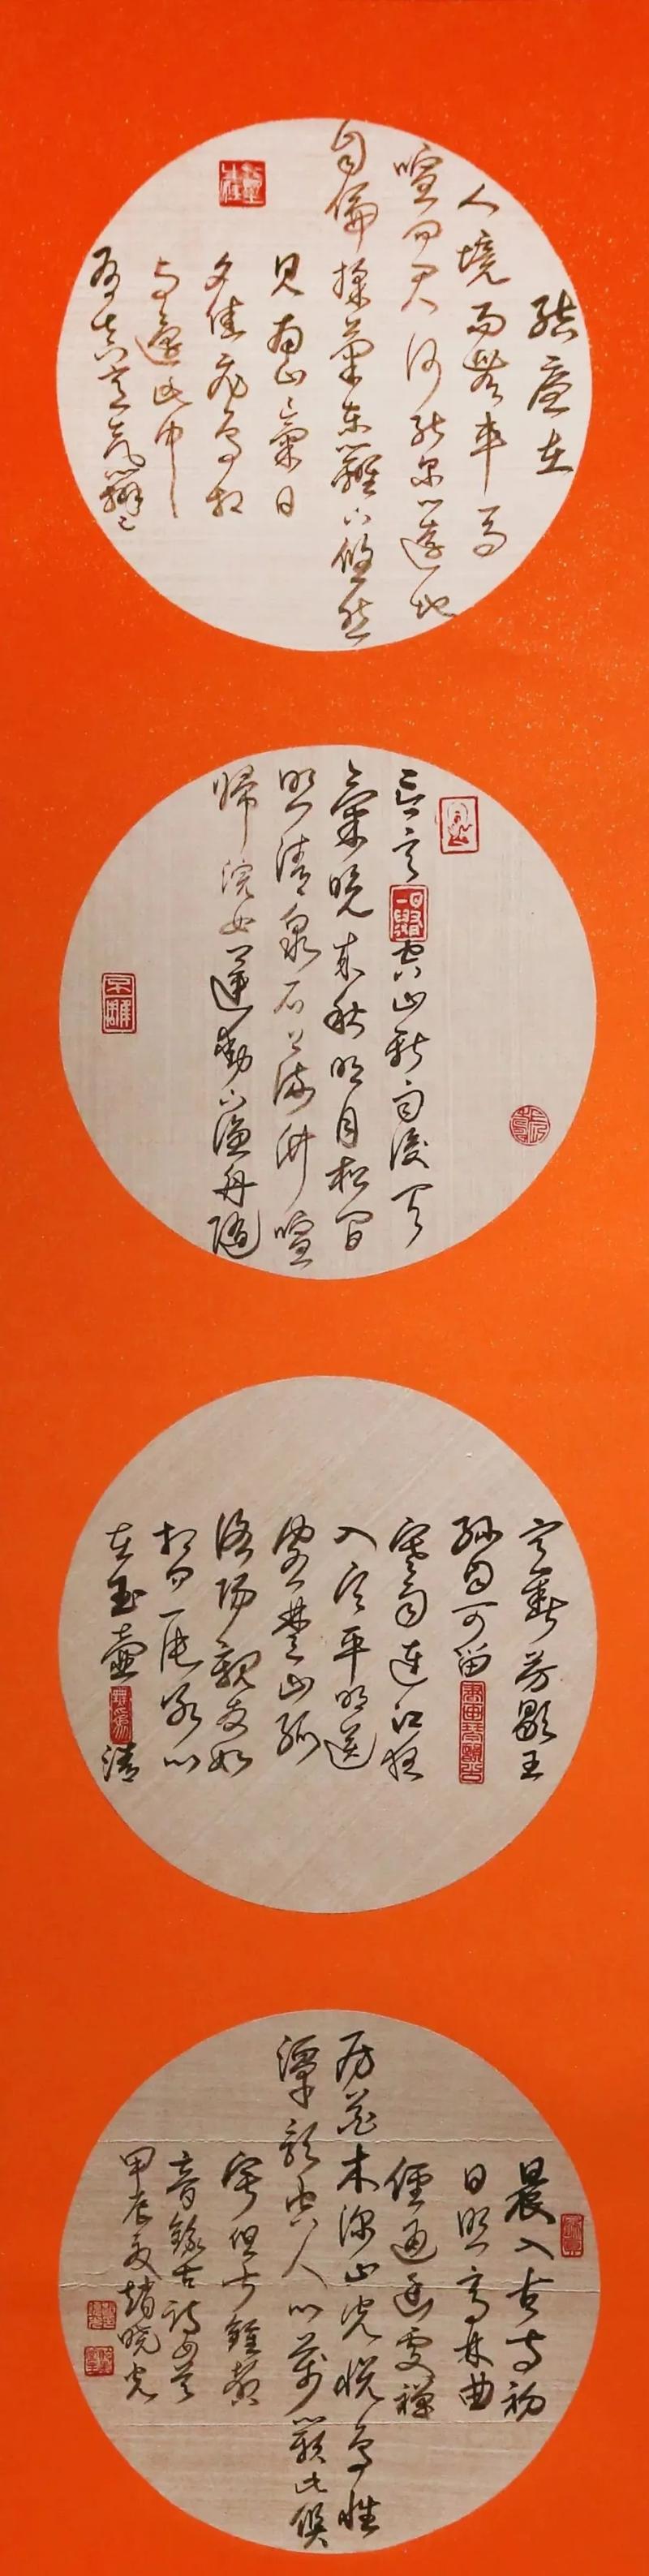 結廬在
人境而無車馬
喧問君何能爾心遠地
自偏採菊東籬下悠然
見南山々氣日
夕佳飛鳥相
與還此中
有真意欲辯已
忘言空山新雨後天
氣晚來秋明月松間
照清泉石上流竹喧
歸浣女蓮動下漁舟隨
意春芳歇王
孫自可留
寒雨連江夜
入吳平明送
客楚山孤
洛陽親友如
相問一片冰心
在玉壺清
晨入古寺初
日照高林曲
徑通幽處禪
房花木深山光悅鳥性
潭影空人心萬籟此俱
寂但餘鐘磬
音錄古詩四首
甲辰夏趙曉光